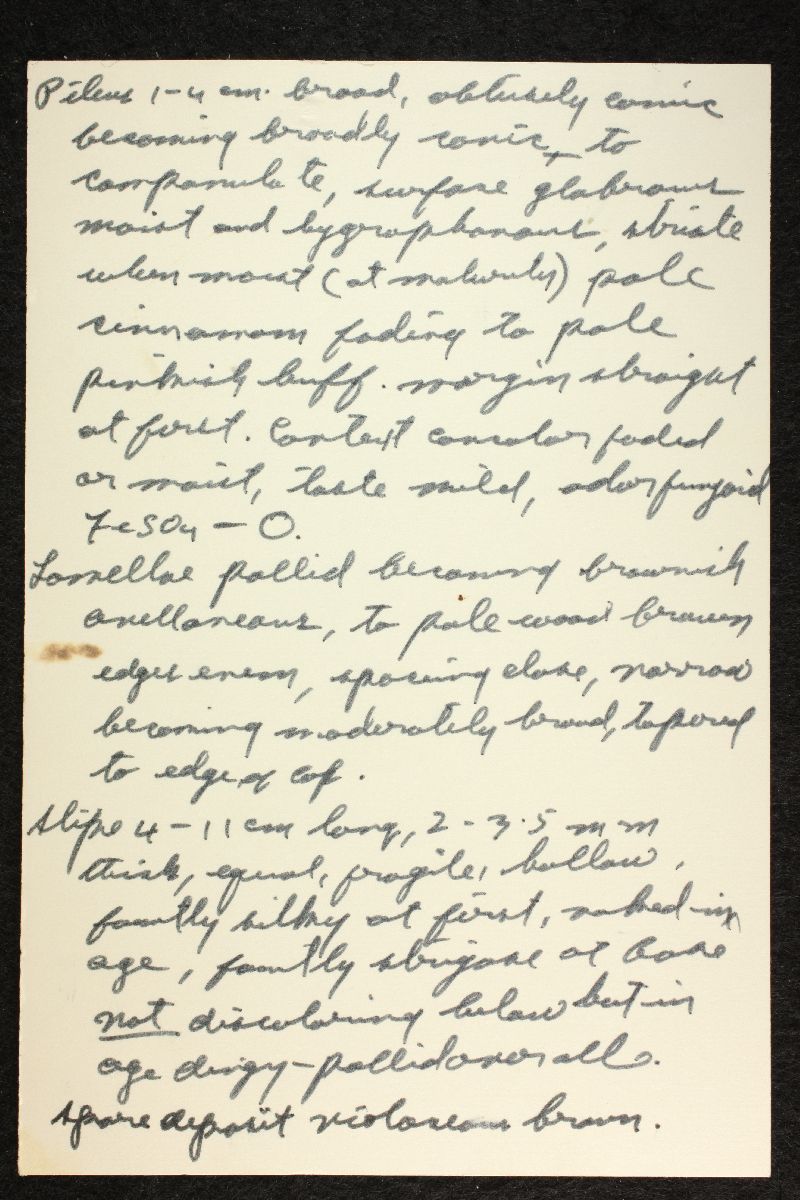 Pileus 1-4 cm. broad, obtusely conic
becoming broadly conic + to
campanulate, surface glabrous
moist and hygrophanous, striate
when moist (at maturity) pale
cinnamon fading to pale
pinkish buff. margin straight
at first. Context concolor faded
or moist, taste mild, odor fungoid
FeSO4 – O.
Lamellae pallid becoming brownish
avellaneous, to pale wood brown
edges even, spacing close, narrow
becoming moderately broad, tapered
to edge of cap.
Stipe 4-11 cm long, 2-3.5 mm
thick, equal, fragile, hollow,
faintly silky at first, naked in
age, faintly strigose at base
not discoloring below but in
age dingy-pallid over all.
Spore deposit violaceous brown.